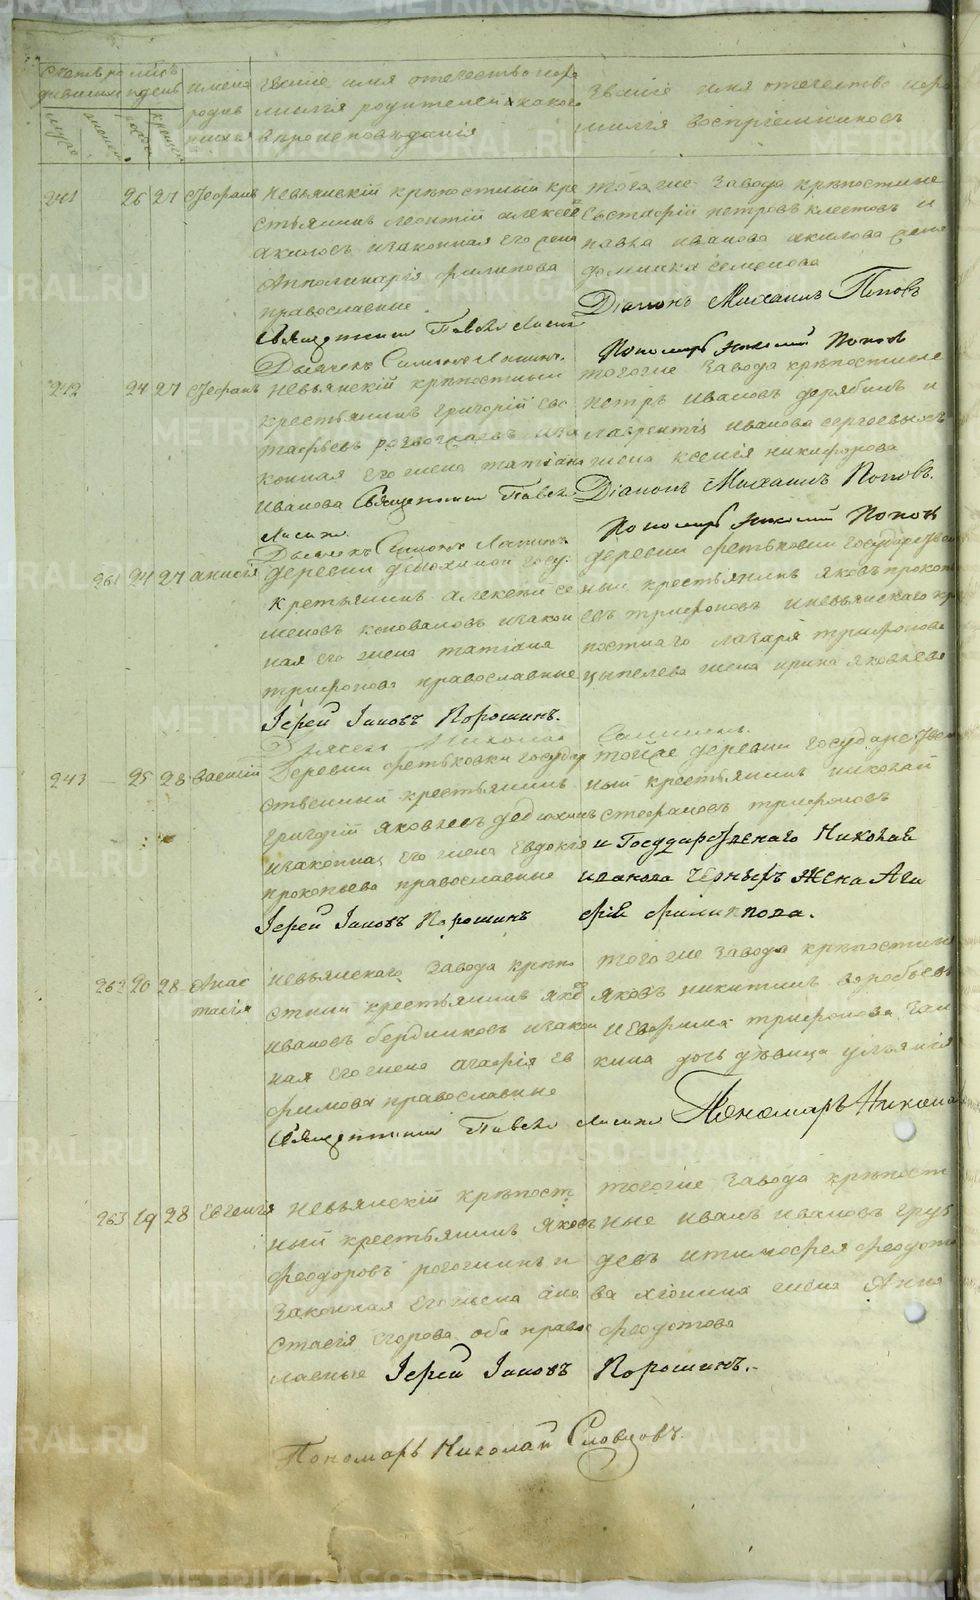 имена
родив
звание имя отечество и фа
милия родителей и какого
вероисповедания
звание имя отечество и фа
милия восприемниковъ
241 26 27 Стефанъ
невьянский крѣпостный кре
стьянинъ леонтий алексеев
и законная его жена
Апполинария филипова
православные
Священникъ Павелъ
Дьячекъ Симонъ
того же завода крѣпостные
Евстафий петровъ клестовъ и
павла иванова жена
домника семенова
Діаконъ Михаилъ Поповъ
Пономарь Николай Поповъ
242 24 27 Стефанъ
невьянский крѣпостный
крестьянинъ григорий евс
тафьевъ и за
конная его жена татиана
иванова Священникъ Павелъ
Дьячекъ Симонъ
того же завода крѣпостные
петръ ивановъ дерябинъ и
лаврентия иванова сергеевыхъ
жена ксения никифорова
Діаконъ Михаилъ Поповъ.
Пономарь Николай Поповъ
261 24 27 анисия
деревни госу.
крестьянинъ алексей се
меновъ коноваловъ и закон
ная его жена татиана
трифонова православные
Іерей Іаковъ Порошинъ.
деревни фетьковки государствен
ный крестьянинъ яковъ прокоп
евъ трифоновъ и невьянскаго кр
постнаго лазаря трифонова
цыпелева жена ирина яковлева
243 25 28 Василий
Деревни фетьковки государ
ственный крестьянинъ
григорий яковлевъ дедюхинъ
и законная его жена Евдокия
прокопьева православные
Іерей Іаковъ Порошинъ
той же деревни государствен
ный крестьянинъ николай
стефановъ трифоновъ
и Государственаго Николая
иванова жена Ага
фия филиппова.
262 20 28 Анас
тасия
невьянскаго завода крѣпо
стный крестьянинъ яков
ивановъ бердниковъ и закон
ная его жена агафия ев
фимова православные
Священникъ Павелъ
того же завода крѣпостные
яковъ никитинъ воробьевъ
и Ефрима трифонова гал
кина дочь дѣвица ульяния
Пономарь Никола
263 19 28 Евгения
невьянский крѣпост
ный крестьянинъ яковъ
феодоровъ рогожинъ и
законная его жена ана
стасия егорова оба право
славные Іерей Іаковъ Порошинъ.
того же завода крѣпост
ные иванъ ивановъ груз
девъ и тимофея феодото
ва жена Анна
феодотова
Пономарь Николай Словцовъ.
METRIKI.GASO-URAL.RU